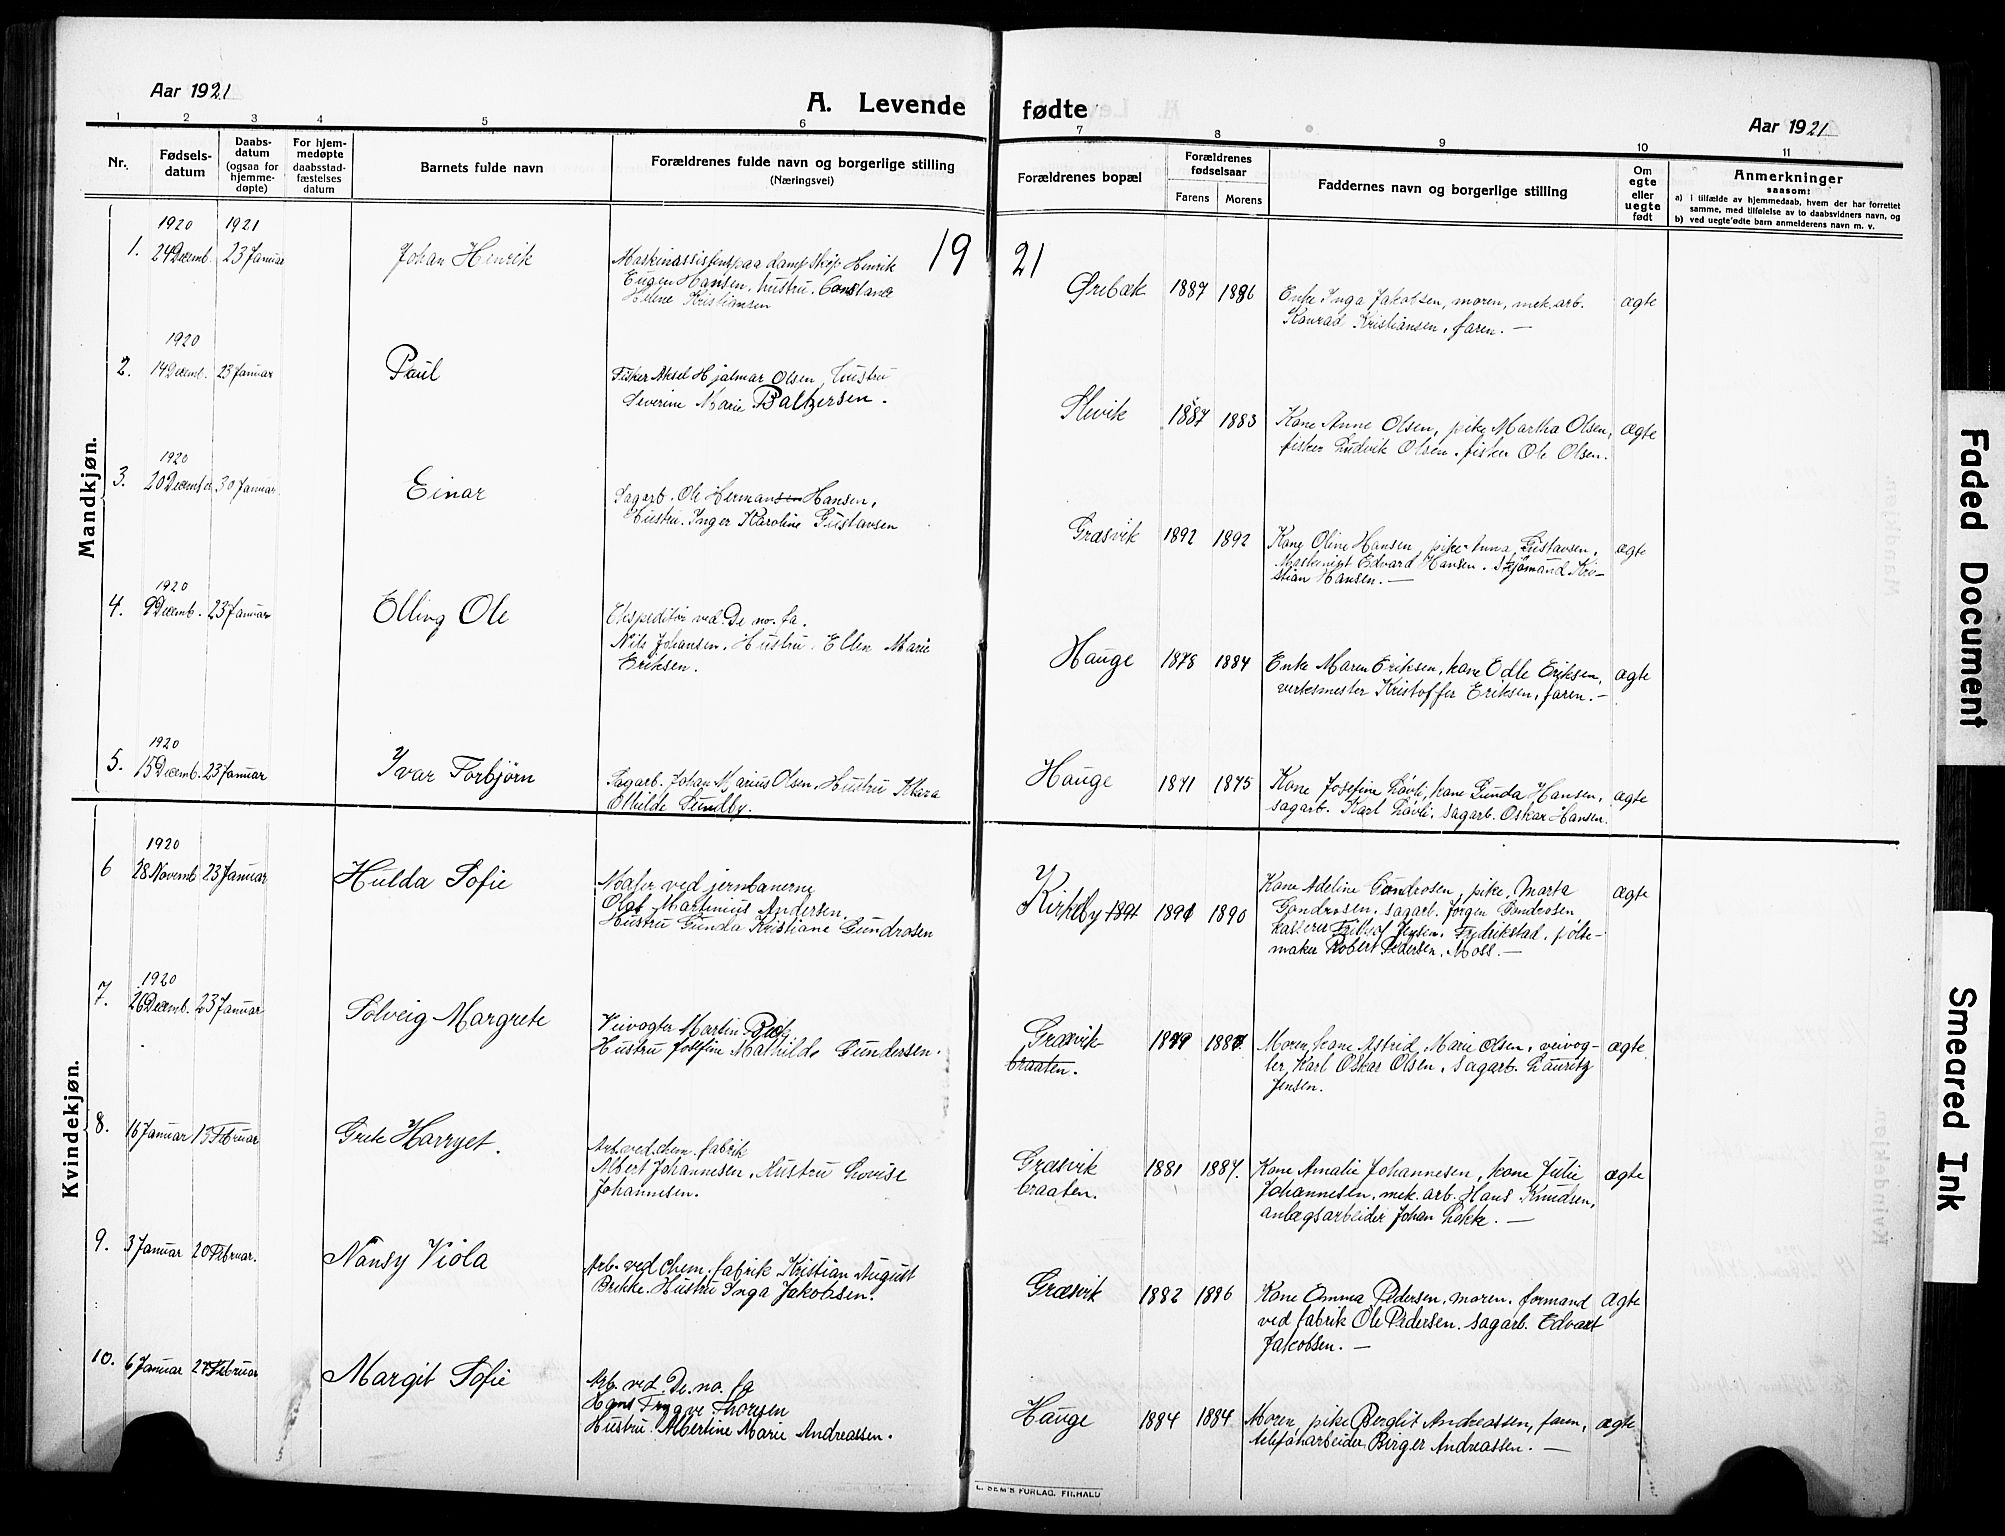 Aar 1921
A. Levende
fødte
Aar 1921
1 2 3 4 5 6 7 8 9 10 11
Nr.
Fødsels-
datum
Daabs-
datum
(ogsaa for
hjemme-
døpte)
For hjem-
medøpte
daabsstad-
fæstelses
datum
Barnets fulde navn
Forældrenes fulde navn og borgerlige stilling
(Næringsvei)
Forældrenes bopæl
Forældrenes
fødselsaar
Farens Morens
Faddernes navn og borgerlige stilling
Om
egte
eller
uegte
født
Anmerkninger
saasom:
a) i tilfælde av hjemmedaab, hvem der har forrettet
samme, med tilføielse av to daabsvidners navn, og
b) ved uegte fødte barn anmelderens navn m. v.
19 21
Mandkjøn.
1920 1921
1. 24 Decemb. 23 Januar
Johan Henrik
Maskinassistent paa dampskip Henrik
Eugen Hansen, hustru. Constance
Helene Kristiansen
Ørebæk 1887 1886
Enke Inga Jakobsen, moren, mek. arb.
Konrad Kristiansen, faren. —
ægte
1920
2. 14 Decemb. 23 Januar
Paul
Fisker Aksel Hjalmar Olsen, hustru
Severine Marie Baltzersen.
Slevik 1887 1883
Kone Anne Olsen, pike Martha Olsen,
fisker Ludvik Olsen, fisker Ole Olsen.
ægte
1920
3. 20 December 30 Januar
Einar
Sagarb. Ole Hermansen Hansen,
Hustru. Inger Karoline Gustavsen
Græsvik 1892 1892
Kone Oline Hansen, pike Anna Gustavsen,
Maskinist Edvard Hansen. Sjømand Kri-
stian Hansen. —
ægte
1920
4. 9 Decemb. 23 Januar
Elling Ole
Ekspeditør ved De no. fa.
Nils Johansen. Hustru. Ellen Marie
Eriksen.
Hauge 1878 1884
Enke Maren Eriksen, kone Edle Eriksen,
verksmester Kristoffer Eriksen, faren. —
ægte
1920
5. 15 Decemb. 23 Januar
Ivar Torbjørn
Sagarb. Johan Marius Olsen, Hustru Klara
Othilde Sundby.
Hauge 1871 1875
Kone Josefine Løvli, kone Gunda Hansen,
sagarb. Karl Løvli, sagarb. Oskar Hansen.
ægte
Kvindekjøn.
1920
6 28 Novemb 23 Januar
Hulda Sofie
ved jernbanerne
Olaf Martinius Andersen.
Hustru Gunda Kristiane Gundrosen
Kirkeby 1891 1891 1890
Kone Adeline Gundrosen, pike, Marta
Gondrosen, sagarb. Jørgen Gondrosen,
kasserer Frithjof Jensen, Fredrikstad, pølse-
maker Robert Pedersen, Moss. —
ægte
1920
7. 26 Decemb. 23 Januar
Solveig Margrete
Veivogter Martin
Hustru Josefine Mathilde Gundersen.
Græsvik
braaten. 1879 1887
Moren, kone Astrid Marie Olsen, veivog-
ter Karl Oskar Olsen, sagarb. Lauritz
Jensen.
ægte
8. 16 Januar 13 Februar
Grete Harryet.
Arb. ved chem. fabrik
Albert Johannesen, Hustru Lovise
Johannesen.
Græsvik
braaten. 1881 1887.
Kone Amalie Johannesen, kone Julie
Johannesen, mek. arb. Hans Knudsen,
anlægsarbeider Johan Lokke. —
ægte
9. 3 Januar 20 Februar.
Nansy Viola
Arb. ved chem. fabrik Kristian August
Brekke. Hustru Inga Jakobsen.
Græsvik 1882 1886
Kone Emma Pedersen, moren. formand
ved fabrik Ole Pedersen. sagarb. Edvart
Jakobsen. —
ægte
10. 6 Januar 27 Februar
Margit Sofie
Arb. ved. De. no. fa
Hans Trygve Thoresen
Hustru. Albertine Marie Andreassen.
Hauge 1884 1884.
Moren, pike Berglit Andreassen, faren,
telefonarbeider Birger Andreassen. —
ægte
SEM'S FORLAG. FR.HALD
Faded Document
Smeared Ink